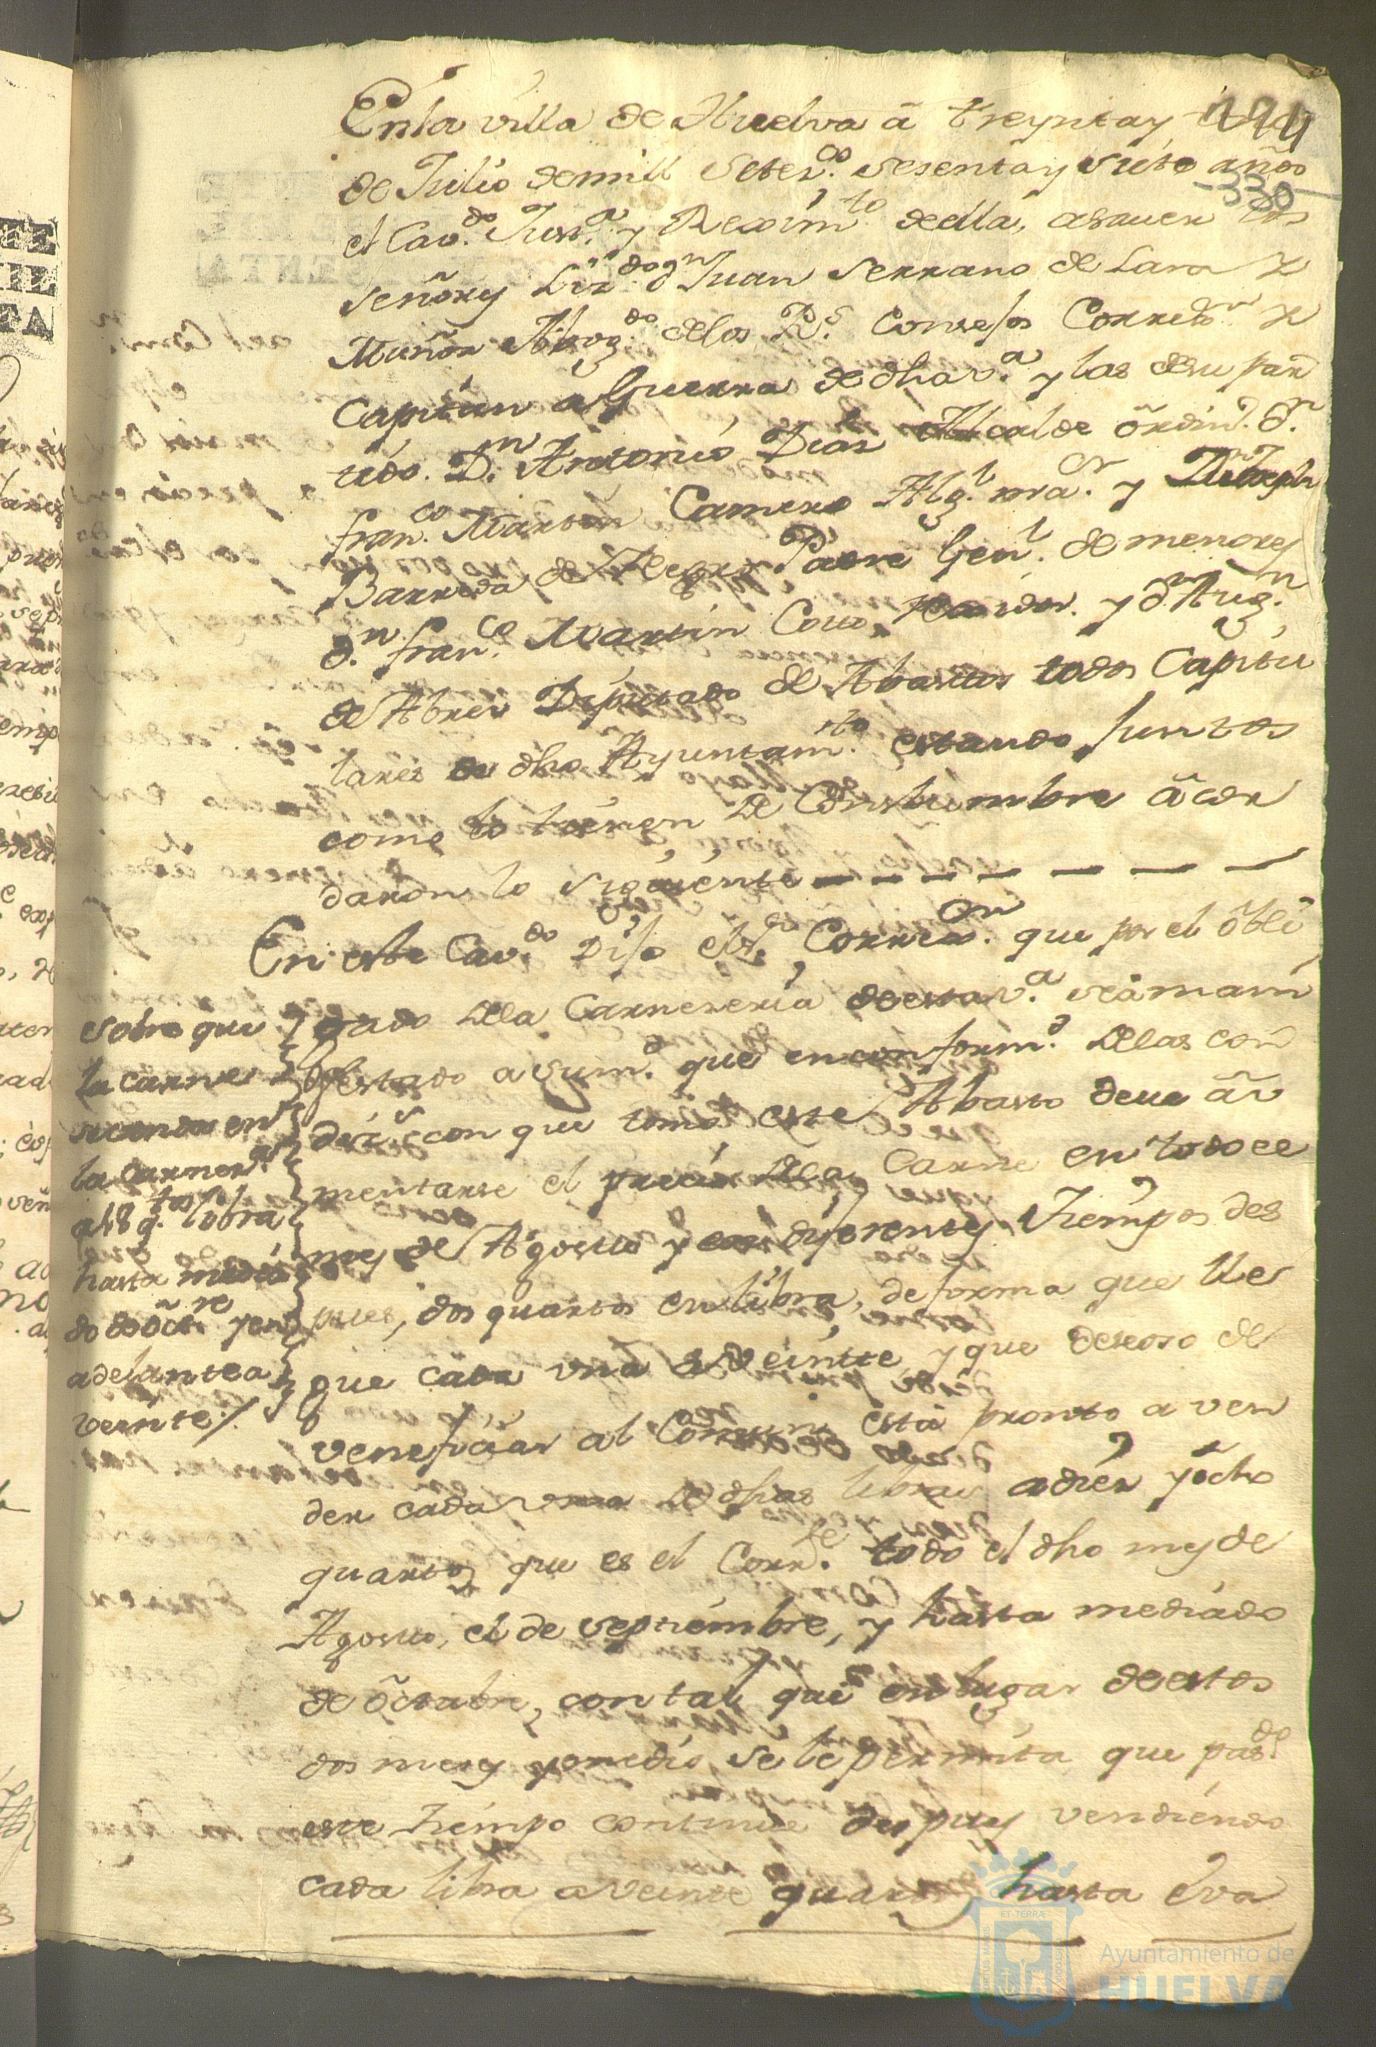 224
330
En la villa de Huelva â treynta y
de Julio de mill setez.os sesenta y siete años
el Cav.do Just.a y Reximto de ella, asauer los
señores Liz.do dn Juan Serrano de Lara y
Muñoz Abog.do de los R.s Consejos Correxor y
Capitan a Guerra de dha v.a y las de su par
tido. D.n Antonio Dias Alcalde ôrdin.o d.n
fran.co Martin Camero Alg.l mr. y
Barreda de Padre Gen.l de menores
d.n fran.co Martin Couo, rexidor. y dn Aug.n
de Abreu Diputado de Abastos todos Capitu
lares de dho Ayuntam.to estando Juntos
como lo tienen de Constumbre âcor
daron lo siguiente
En este Cav.do Dijo el S.r Correxor que por el ôbli
gado de la Carneseria de esta v.a se â mani
festado a su m.d que en conform.d de las con
diz.s con que tomó este Abasto deue âu
mentarse el precio de la Carne en todo ee
mes de Agosto y en diferentes Tiempos des
pues, dos quartos en libra, de forma que lle
gue cada una a veintte, y que deseoso de
veneficiar al Comun está pronto a ven
der cada una de dhas libras a diez y ôcho
quartos que es el Corr.te todo el dho mes de
Agosto, el de septiembre, y hasta mediado
de ôctubre, con tal que en lugar de estos
dos meses y medio se le permita que pas.do
este Tiempo continue despues vendiendo
cada libra a veinte quartos hasta êva
Sobre que
la carne se
venda en
la carnes.a
a 18 q.tos libra
hasta media
do de ôct.re y en
adelante a
veinte
Ayuntamiento de
HUELVA